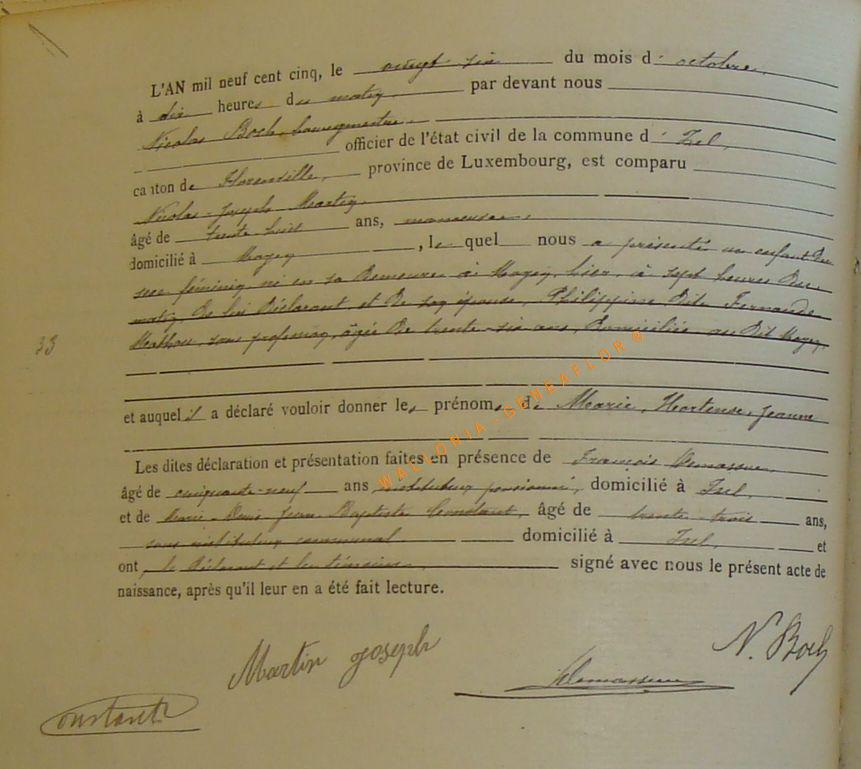 L'AN mil neuf cent cinq, le vingt six du mois d' octobre,
à dix heures du matin, par devant nous
Nicolas Boch, bourgmestre,
officier de l'état civil de la commune d' Izel,
canton de Florenville, province de Luxembourg, est comparu
Nicolas-Joseph Martin,
âgé de trente huit ans, manoeuvre,
domicilié à Moyen, le quel nous a présenté un enfant du
sexe féminin né en sa demeure à Moyen, hier, à sept heures du
matin, de lui déclarant et de son épouse, Philippine dite Fernande
sans profession, âgée de trente-six ans, domiciliée au dit Moyen,
33
et auquel il a déclaré vouloir donner les prénoms de Marie, Hortense, Jeanne
Les dites déclaration et présentation faites en présence de François Demasure,
âgé de cinquante-neuf ans instituteur pensionné, domicilié à Izel,
et de Louis Jean Baptiste Constant, âgé de trente-trois ans,
sous instituteur communal domicilié à Izel, et
ont, le déclarant et les témoins, signé avec nous le présent acte de
naissance, après qu'il leur en a été fait lecture.
WALLONIA-GENEAFLOR®
Martin joseph
N. Boch
Constant